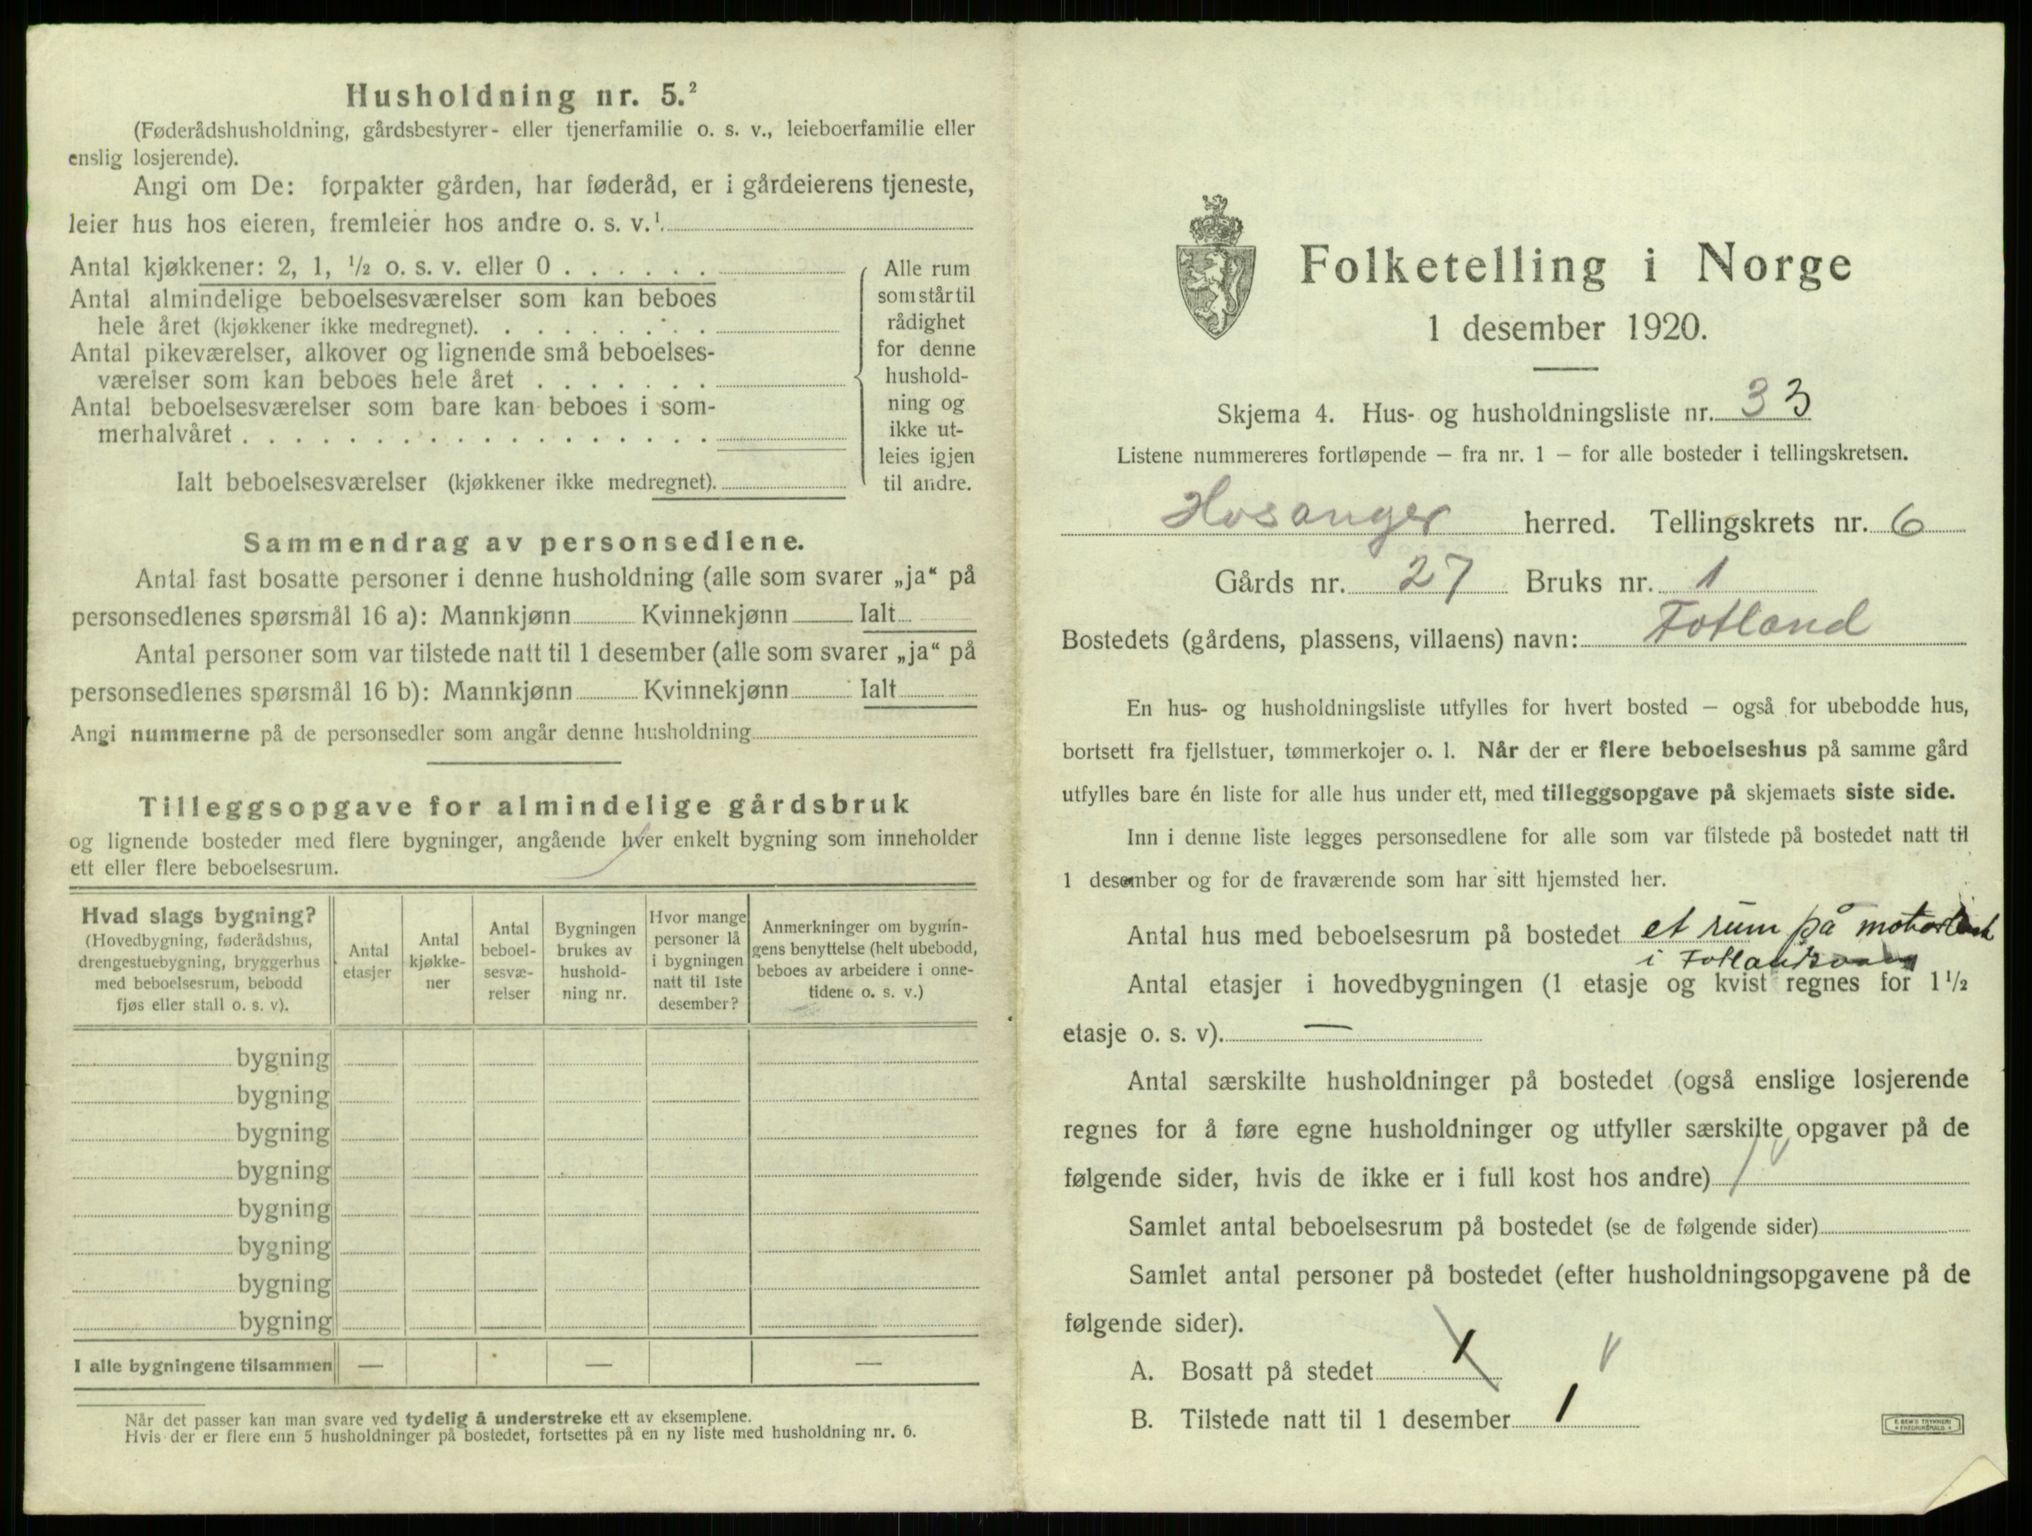 Husholdning nr. 5.²
(Føderådshusholdning, gårdsbestyrer- eller tjenerfamilie o. s. v., leieboerfamilie eller
enslig losjerende).
Angi om De: forpakter gården, har føderåd, er i gårdeierens tjeneste,
leier hus hos eieren, fremleier hos andre o. s. v.¹
Antal kjøkkener: 2, 1, ½ o. s. v. eller 0 . . . . . .
Antal almindelige beboelsesværelser som kan beboes
hele året (kjøkkener ikke medregnet). . . . . . . . .
Antal pikeværelser, alkover og lignende små beboelses-
værelser som kan beboes hele året . . . . . . .
Antal beboelsesværelser som bare kan beboes i som-
merhalvåret . . . . . . . . . . . . . . . . . .
Ialt beboelsesværelser (kjøkkener ikke medregnet).
Alle rum
som står til
rådighet
for denne
hushold-
ning og
ikke ut-
leies igjen
til andre.
Sammendrag av personsedlene.
Antal fast bosatte personer i denne husholdning (alle som svarer „ja“ på
personsedlenes spørsmål 16 a): Mannkjønn Kvinnekjønn Ialt
Antal personer som var tilstede natt til 1 desember (alle som svarer „ja“ på
personsedlenes spørsmål 16 b): Mannkjønn Kvinnekjønn Ialt
Angi nummerne på de personsedler som angår denne husholdning
Tilleggsopgave for almindelige gårdsbruk
og lignende bosteder med flere bygninger, angående hver enkelt bygning som inneholder
ett eller flere beboelsesrum.
Hvad slags bygning?
(Hovedbygning, føderådshus,
drengestuebygning, bryggerhus
med beboelsesrum, bebodd
fjøs eller stall o. s. v).
Antal
etasjer
Antal
kjøkke-
ner
Antal
beboel-
sesvæ-
relser
Bygningen
brukes av
hushold-
ning nr.
Hvor mange
personer lå
i bygningen
natt til 1ste
desember?
Anmerkninger om bygnin-
gens benyttelse (helt ubebodd,
beboes av arbeidere i onne-
tidene o. s. v.)
bygning
bygning
bygning
bygning
bygning
bygning
bygning
bygning
I alle bygningene tilsammen — — —
Når det passer kan man svare ved tydelig å understreke ett av eksemplene.
Hvis der er flere enn 5 husholdninger på bostedet, fortsettes på en ny liste med husholdning nr. 6.
Folketelling i Norge
1 desember 1920.
Skjema 4. Hus- og husholdningsliste nr. 33
Listene nummereres fortløpende – fra nr. 1 – for alle bosteder i tellingskretsen.
Hosanger herred. Tellingskrets nr. 6
Gårds nr. 27 Bruks nr. 1
Bostedets (gårdens, plassens, villaens) navn: Fotland
En hus- og husholdningsliste utfylles for hvert bosted – også for ubebodde hus,
bortsett fra fjellstuer, tømmerkojer o. l. Når der er flere beboelseshus på samme gård
utfylles bare én liste for alle hus under ett, med tilleggsopgave på skjemaets siste side.
Inn i denne liste legges personsedlene for alle som var tilstede på bostedet natt til
1 desember og for de fraværende som har sitt hjemsted her.
Antal hus med beboelsesrum på bostedet et rum på
i
Antal etasjer i hovedbygningen (1 etasje og kvist regnes for 1½
etasje o. s. v). —
Antal særskilte husholdninger på bostedet (også enslige losjerende
regnes for å føre egne husholdninger og utfyller særskilte opgaver på de
følgende sider, hvis de ikke er i full kost hos andre) 1
Samlet antal beboelsesrum på bostedet (se de følgende sider)
Samlet antal personer på bostedet (efter husholdningsopgavene på de
følgende sider).
A. Bosatt på stedet 1
B. Tilstede natt til 1 desember 1
E. SEM'S TRYKKERI
FREDRIKSHALD